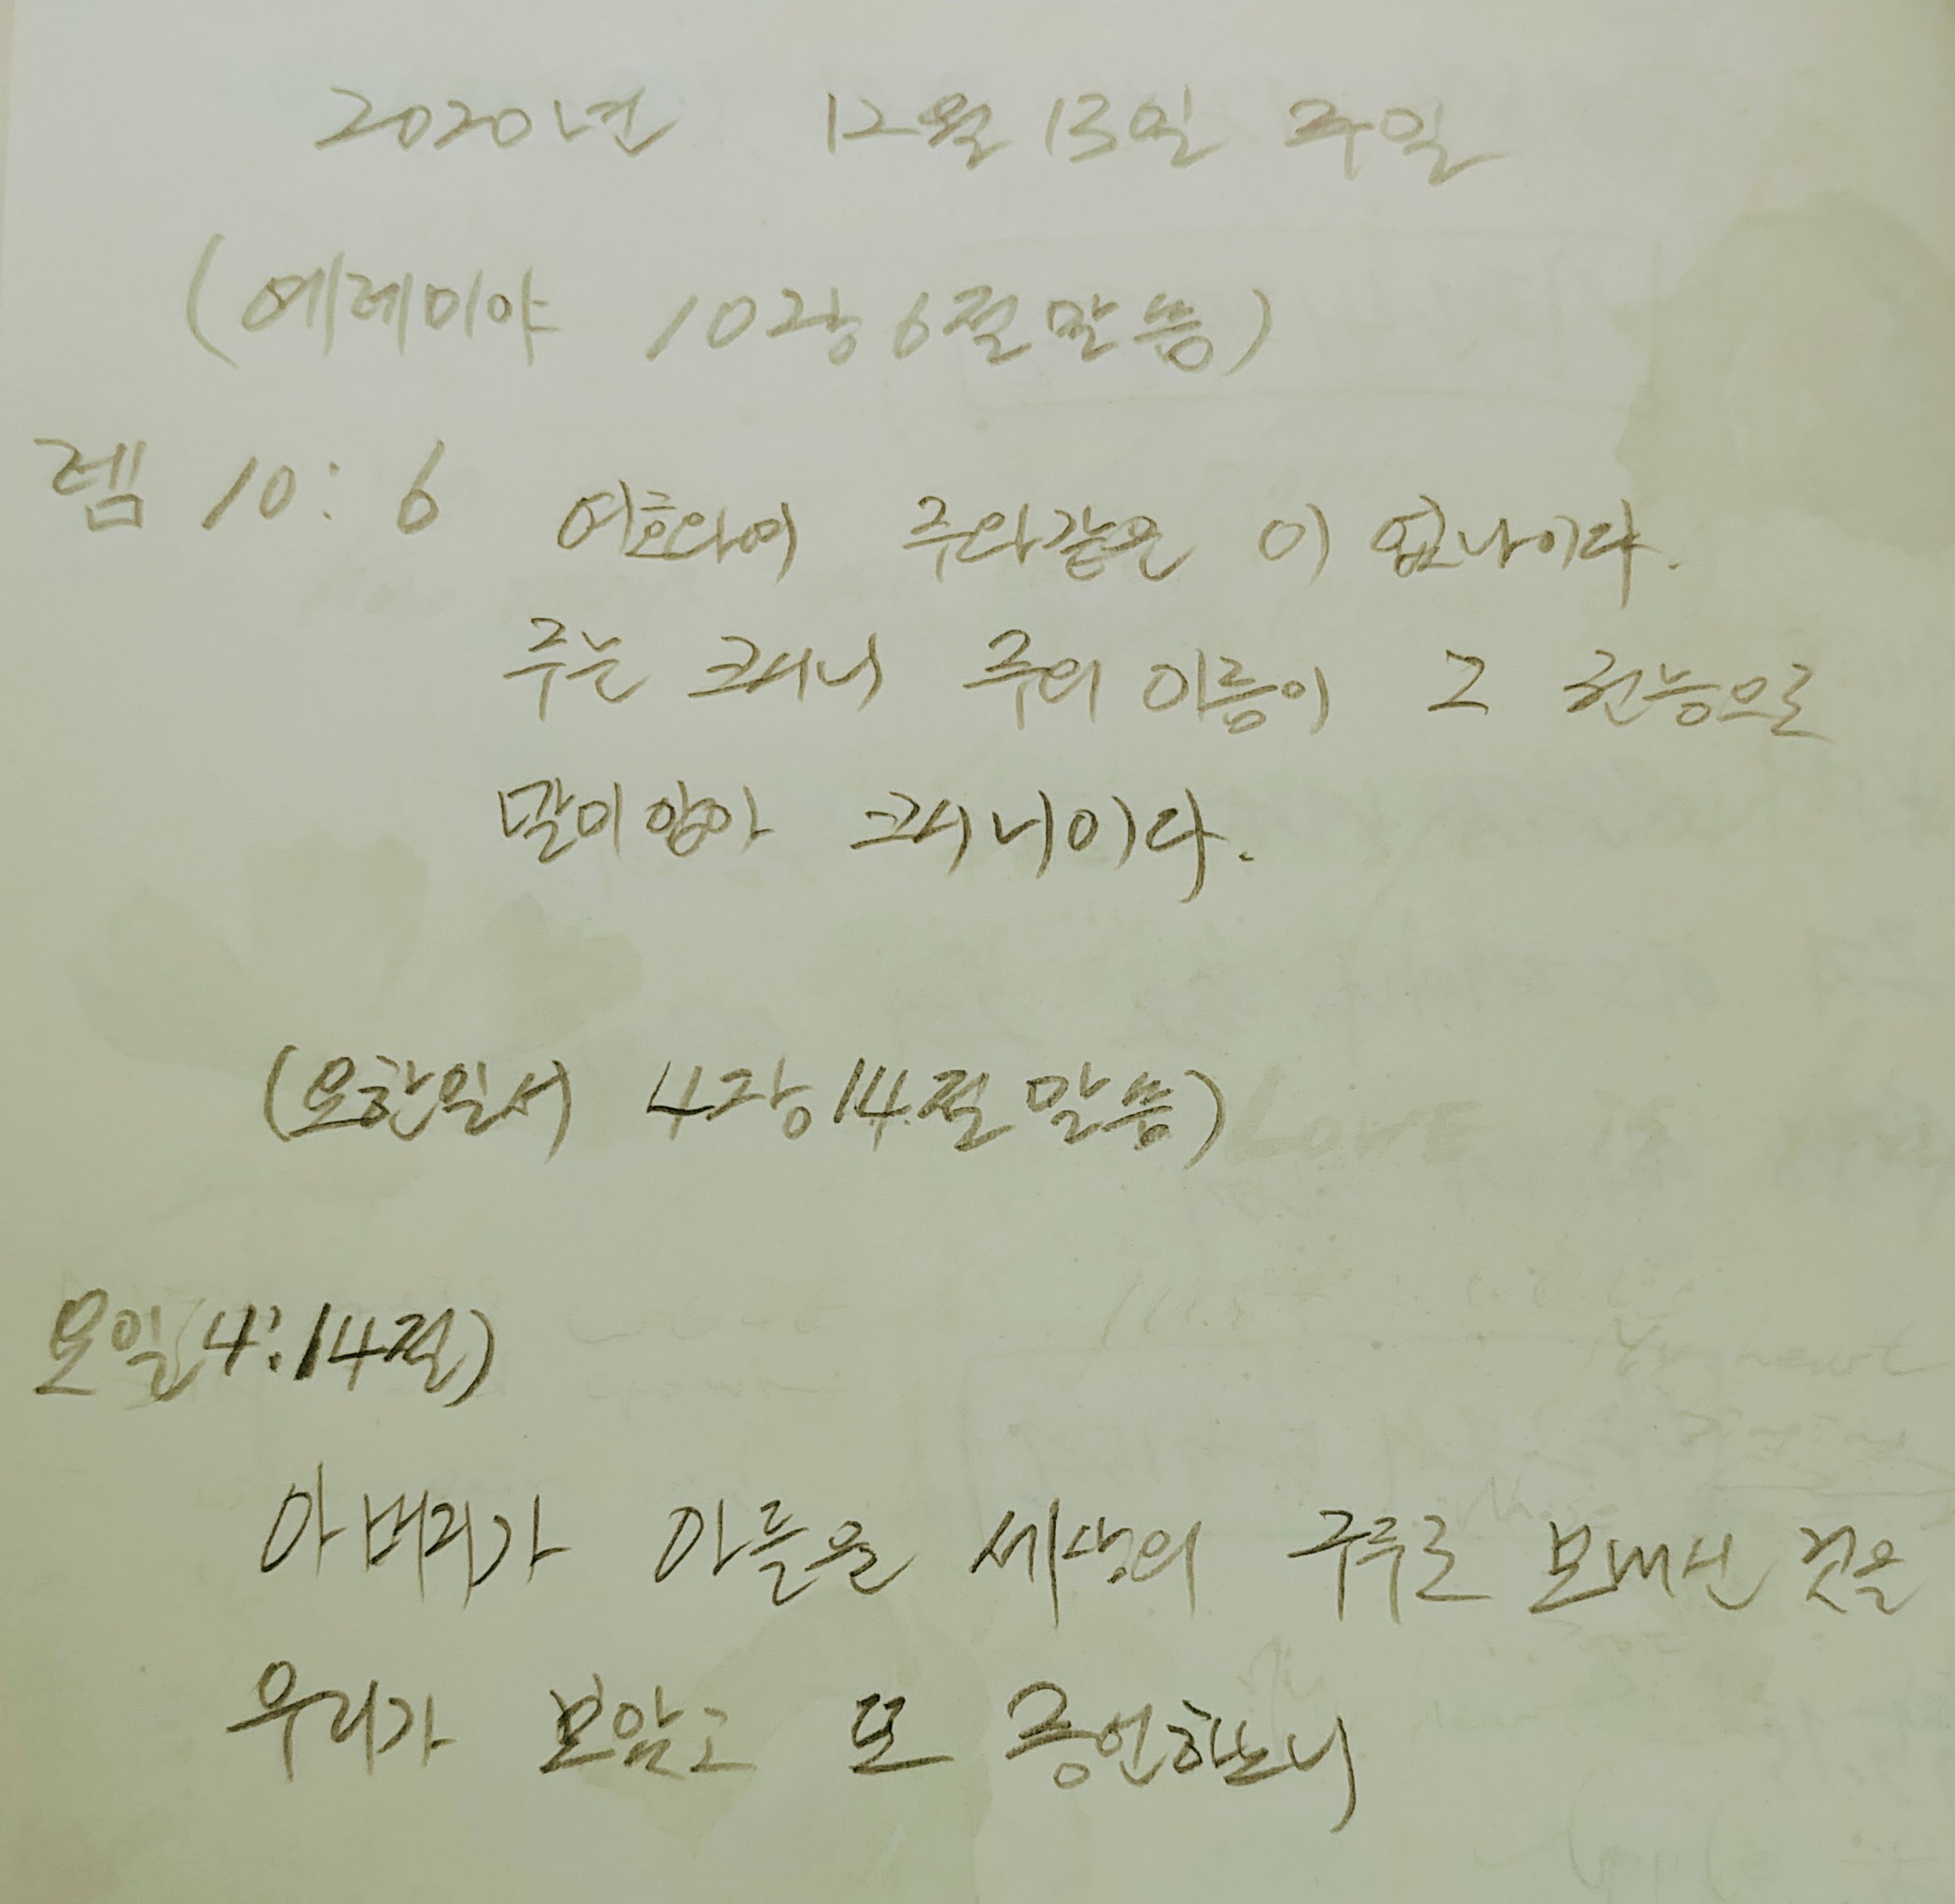 2020년 12월 13일 주일
(예레미야 10장 6절 말씀)
렘 10:6 여호와여 주와같은 이 없나이다.
주는 크시니 주의 이름이 그 권능으로
말미암아 크시니이다.
(요한일서 4장 14절 말씀)
요일(4:14절)
아버지가 아들을 세상의 구주로 보내신 것을
우리가 보았고 또 증언하노니